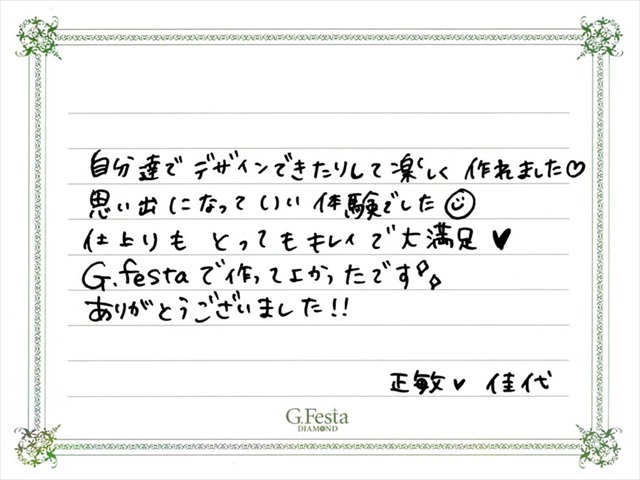 自分達で デザインできたりして楽しく 作れました♡
思い出になっていい 体験でした☺
仕上りも とってもキレイで大満足 ♥
G.festaで作ってよかったです✧✧
ありがとうございました!!
正敏 ♥ 佳代
G.Festa
DIAMOND